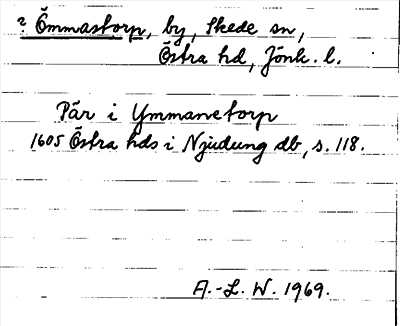 ? Ömmastorp, by, Skede sn,
Östra hd, Jönk. l.
Pär i Ymmanetorp
1605 Östra hds i Njudung db, s. 118.
A.-L. W. 1969.